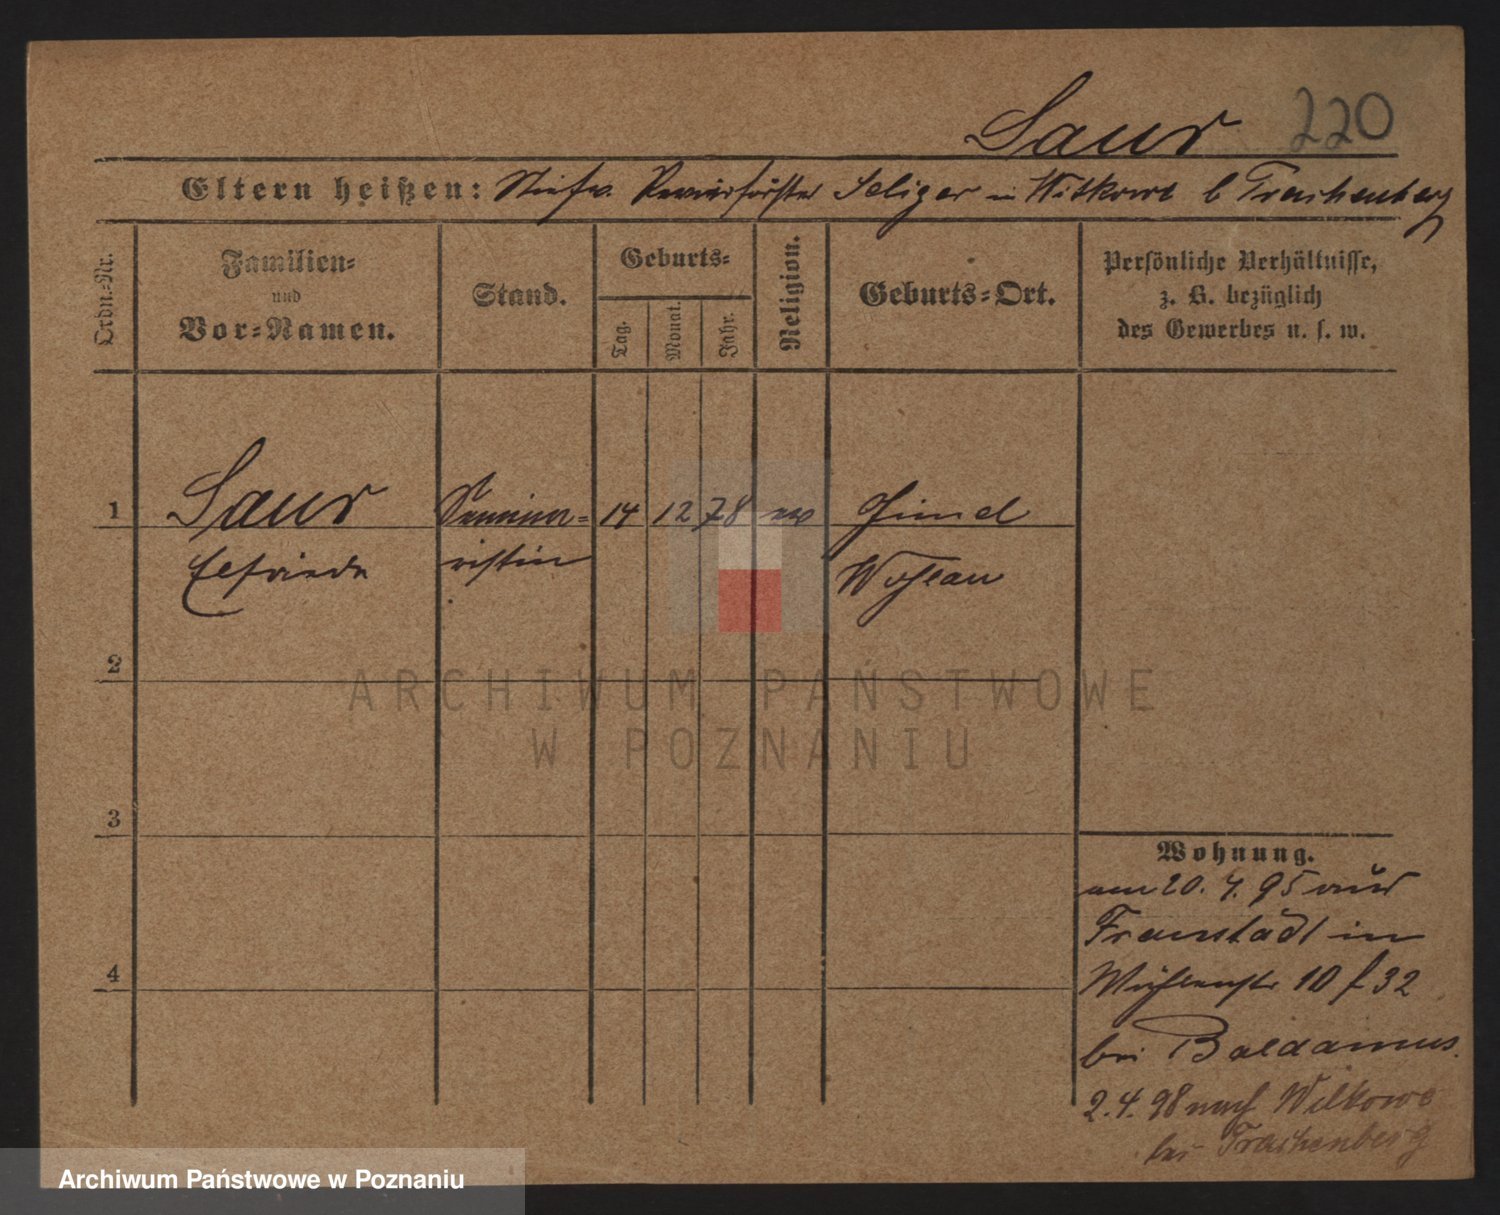 Saur 220
Eltern heißen: Stiefv. Revierförster Seliger in Wilkowe b Trachenberg
Ordn.-Nr.
Familien-
und
Vor-Namen.
Stand.
Geburts-
Tag.
Monat.
Jahr.
Religion.
Geburts-Ort.
Persönliche Verhältnisse,
z. B. bezüglich
des Gewerbes u. s. w.
1 Saur Semina- 14 12 78 ev Gimmel
Elfriede ristin Wohlau
2
3
4
Wohnung.
am 20. 4. 95 aus
Fraustadt in
Mühlenstr 10 f 32
bei Baldamus.
2. 4. 98 nach Wilkowe
bei Trachenberg
ARCHIWUM PAŃSTWOWE
W POZNANIU
Archiwum Państwowe w Poznaniu